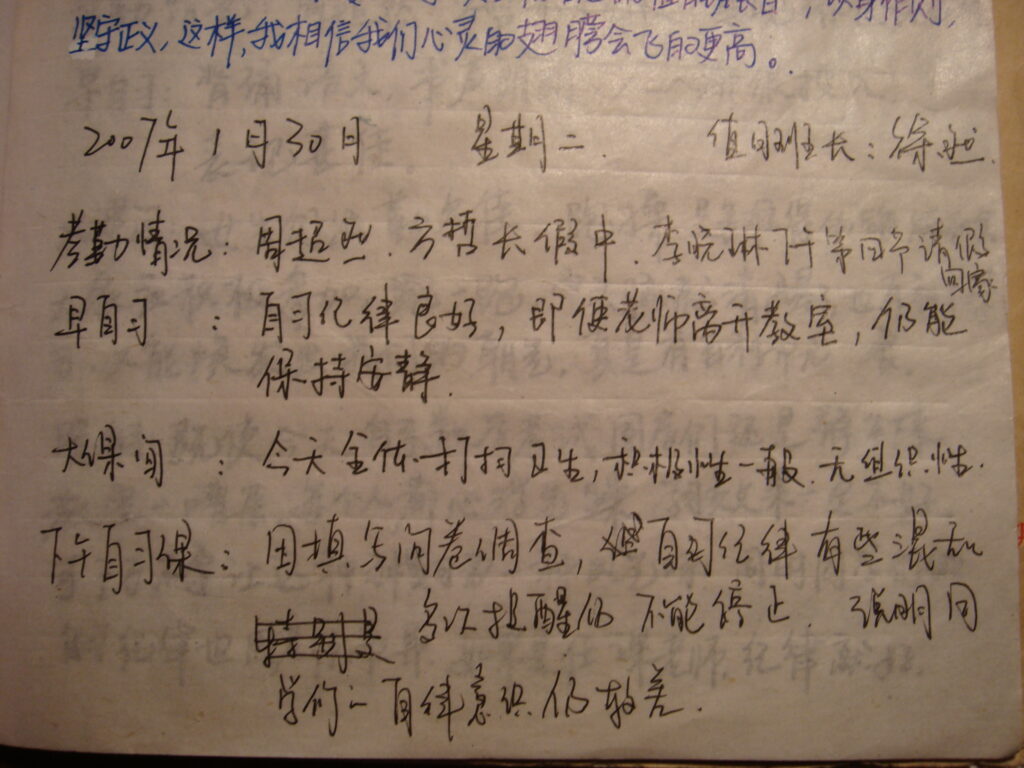 以身作则,
坚守正义,这样,我相信我们心灵的翅膀会飞的更高。
2007年1月30日 星期二. 值日班长:徐
考勤情况:周超 . 方哲长假中. 李晓琳下午第四节请假回家
早自习 : 自习纪律良好,即便老师离开教室,仍能
保持安静.
大课间 : 今天全体打扫卫生,积极性一般.无组织性.
下午自习课: 因填写问卷调查, 自习纪律有些混乱
多次提醒仍不能停止. 说明同
学们自律意识仍较差.